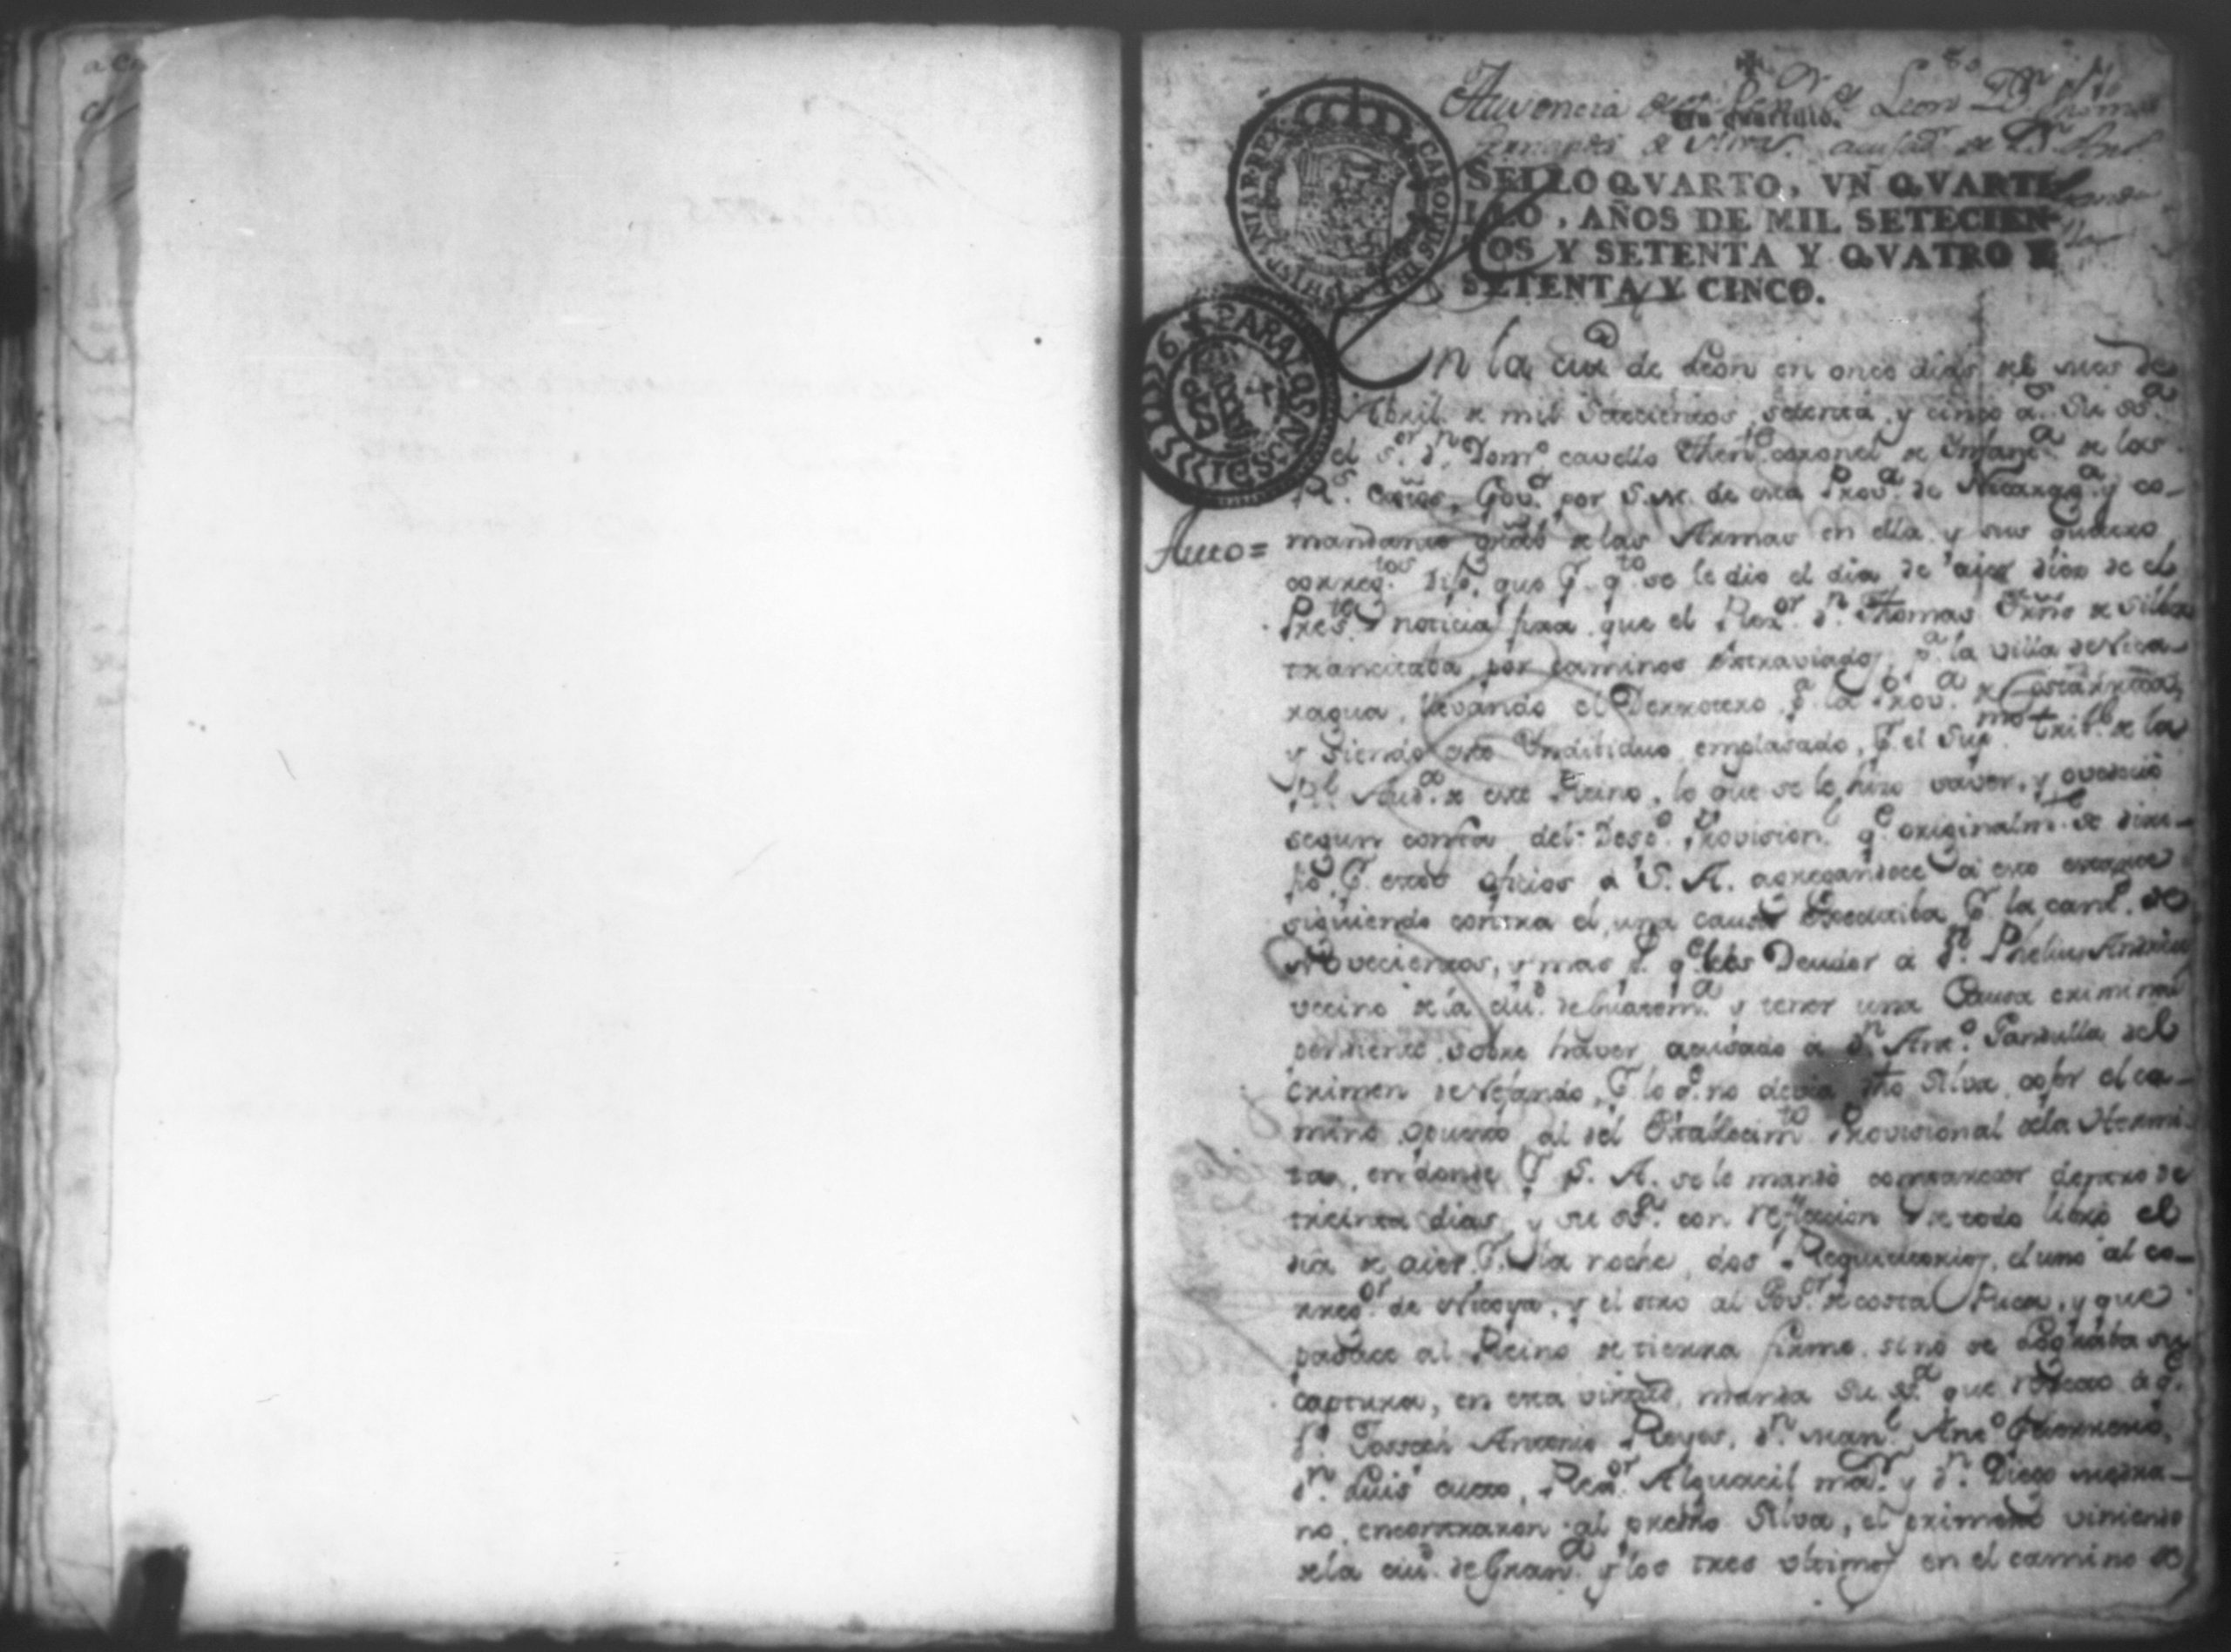 Un quartillo.
SELLO QVARTO, VN QVARTI
LLO, AÑOS DE MIL SETECIEN
TOS Y SETENTA Y QVATRO Y
SETENTA Y CINCO.
En la ciu.d de Leon en once dias del mes de
Abril de mil setecientos, setenta, y cinco a.s Su ss.a
el s.or d.n Dom.o cavello Then.te coronel de Infant.a de los
R.s Gov.or por S.M. de esta Prov.a de Nicarag.a y co-
Auto = mandante gral de las Armas en ella, y sus quatro
correg.tos Dijo, que p.r q.to se le dio el dia de aier dies de el
Pres.te noticia fixa que el Rex.or d.n Thomas de Silba
trancitaba, por caminos extraviados, p.a la villa de Nica-
ragua, llevando el Derrotero p.a la Prov.a de Costarrica,
y siendo este Yndibiduo emplasado, p.r el Sup.mo trib.l de la
R.l Aud.a de este Reino, lo que se le hiso saver, y ovedecio
segun consta del Desp.o Provision.l q.e originalm.te se diri-
jio p.r estos oficios a S. A. agregandoce a esto estarce
siguiendo contra el, una causa Executiba p.r la cant.d de
Novecientos, y mas p.s q.e es Deudor a d.n Phelis
vecino de la ciu.d de Guatem.a y tener una Causa criminal
pendiente, sobre haver acusado a d.n Ant.o Pansulla del
crimen de Nefando, p.r lo q.e no devia dho Silva, cojer el ca-
mino opuesto al del Establecim.to Provisional de la Hermi-
ta, en donde p.r S. A. se le mandó comparecer dentro de
treinta dias, y su ss.a con reflecion de todo libró el
dia de aier p.r la noche, dos Requicitorios, el uno al co-
rreg.or de Nicoya, y el otro al Gov.or de costa Rica, y que
pasace al Reino de tierra firme, sino se Lograba su
captura, en esta virtud, manda su ss.a que respecto á q.e
d.n Joseph Antonio Reyes, d.n Man.l Ant.o Guerrero,
d.n Luis cueto, Rex.or Alguacil ma.or y d.n Diego medra-
no, encontraron al precitado Silva, el primero viniendo
de la ciu.d de Gran.a y los tres ultimos en el camino de